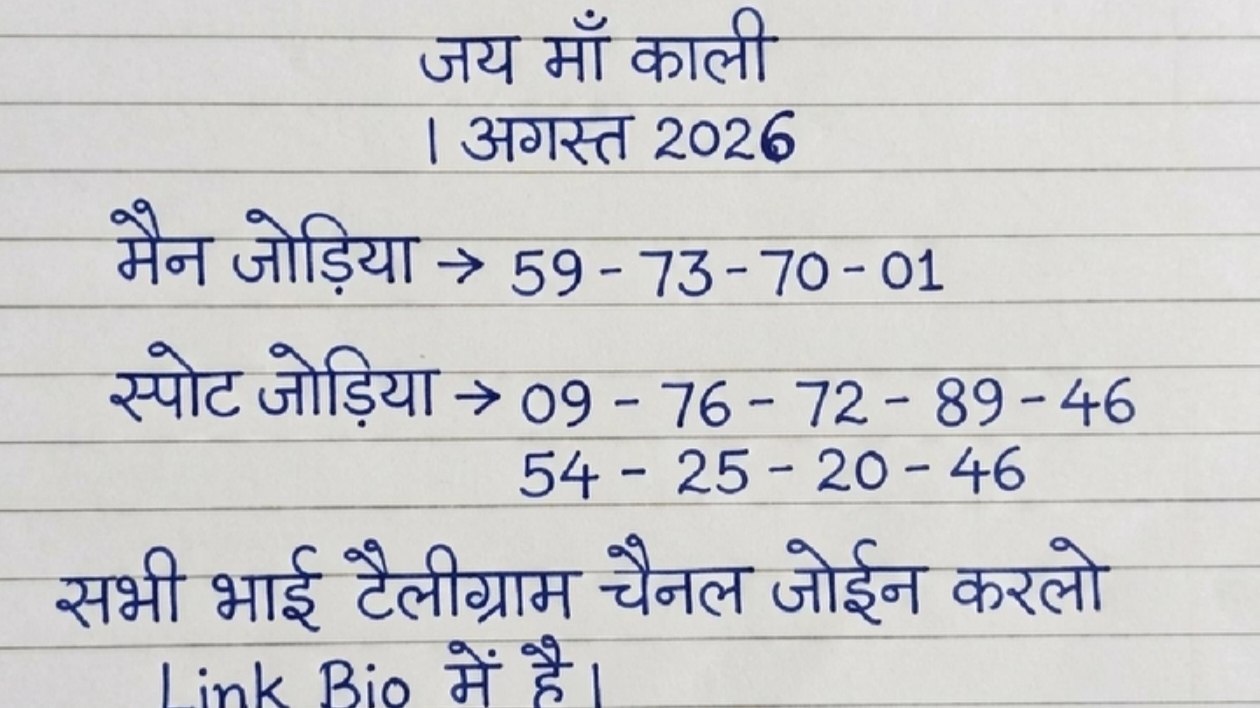 जय माँ काली
1 अगस्त 2026
मैन जोड़िया → 59 - 73 - 70 - 01
स्पोट जोड़िया → 09 - 76 - 72 - 89 - 46
54 - 25 - 20 - 46
सभी भाई टैलीग्राम चैनल जोईन करलो
Link Bio में है।